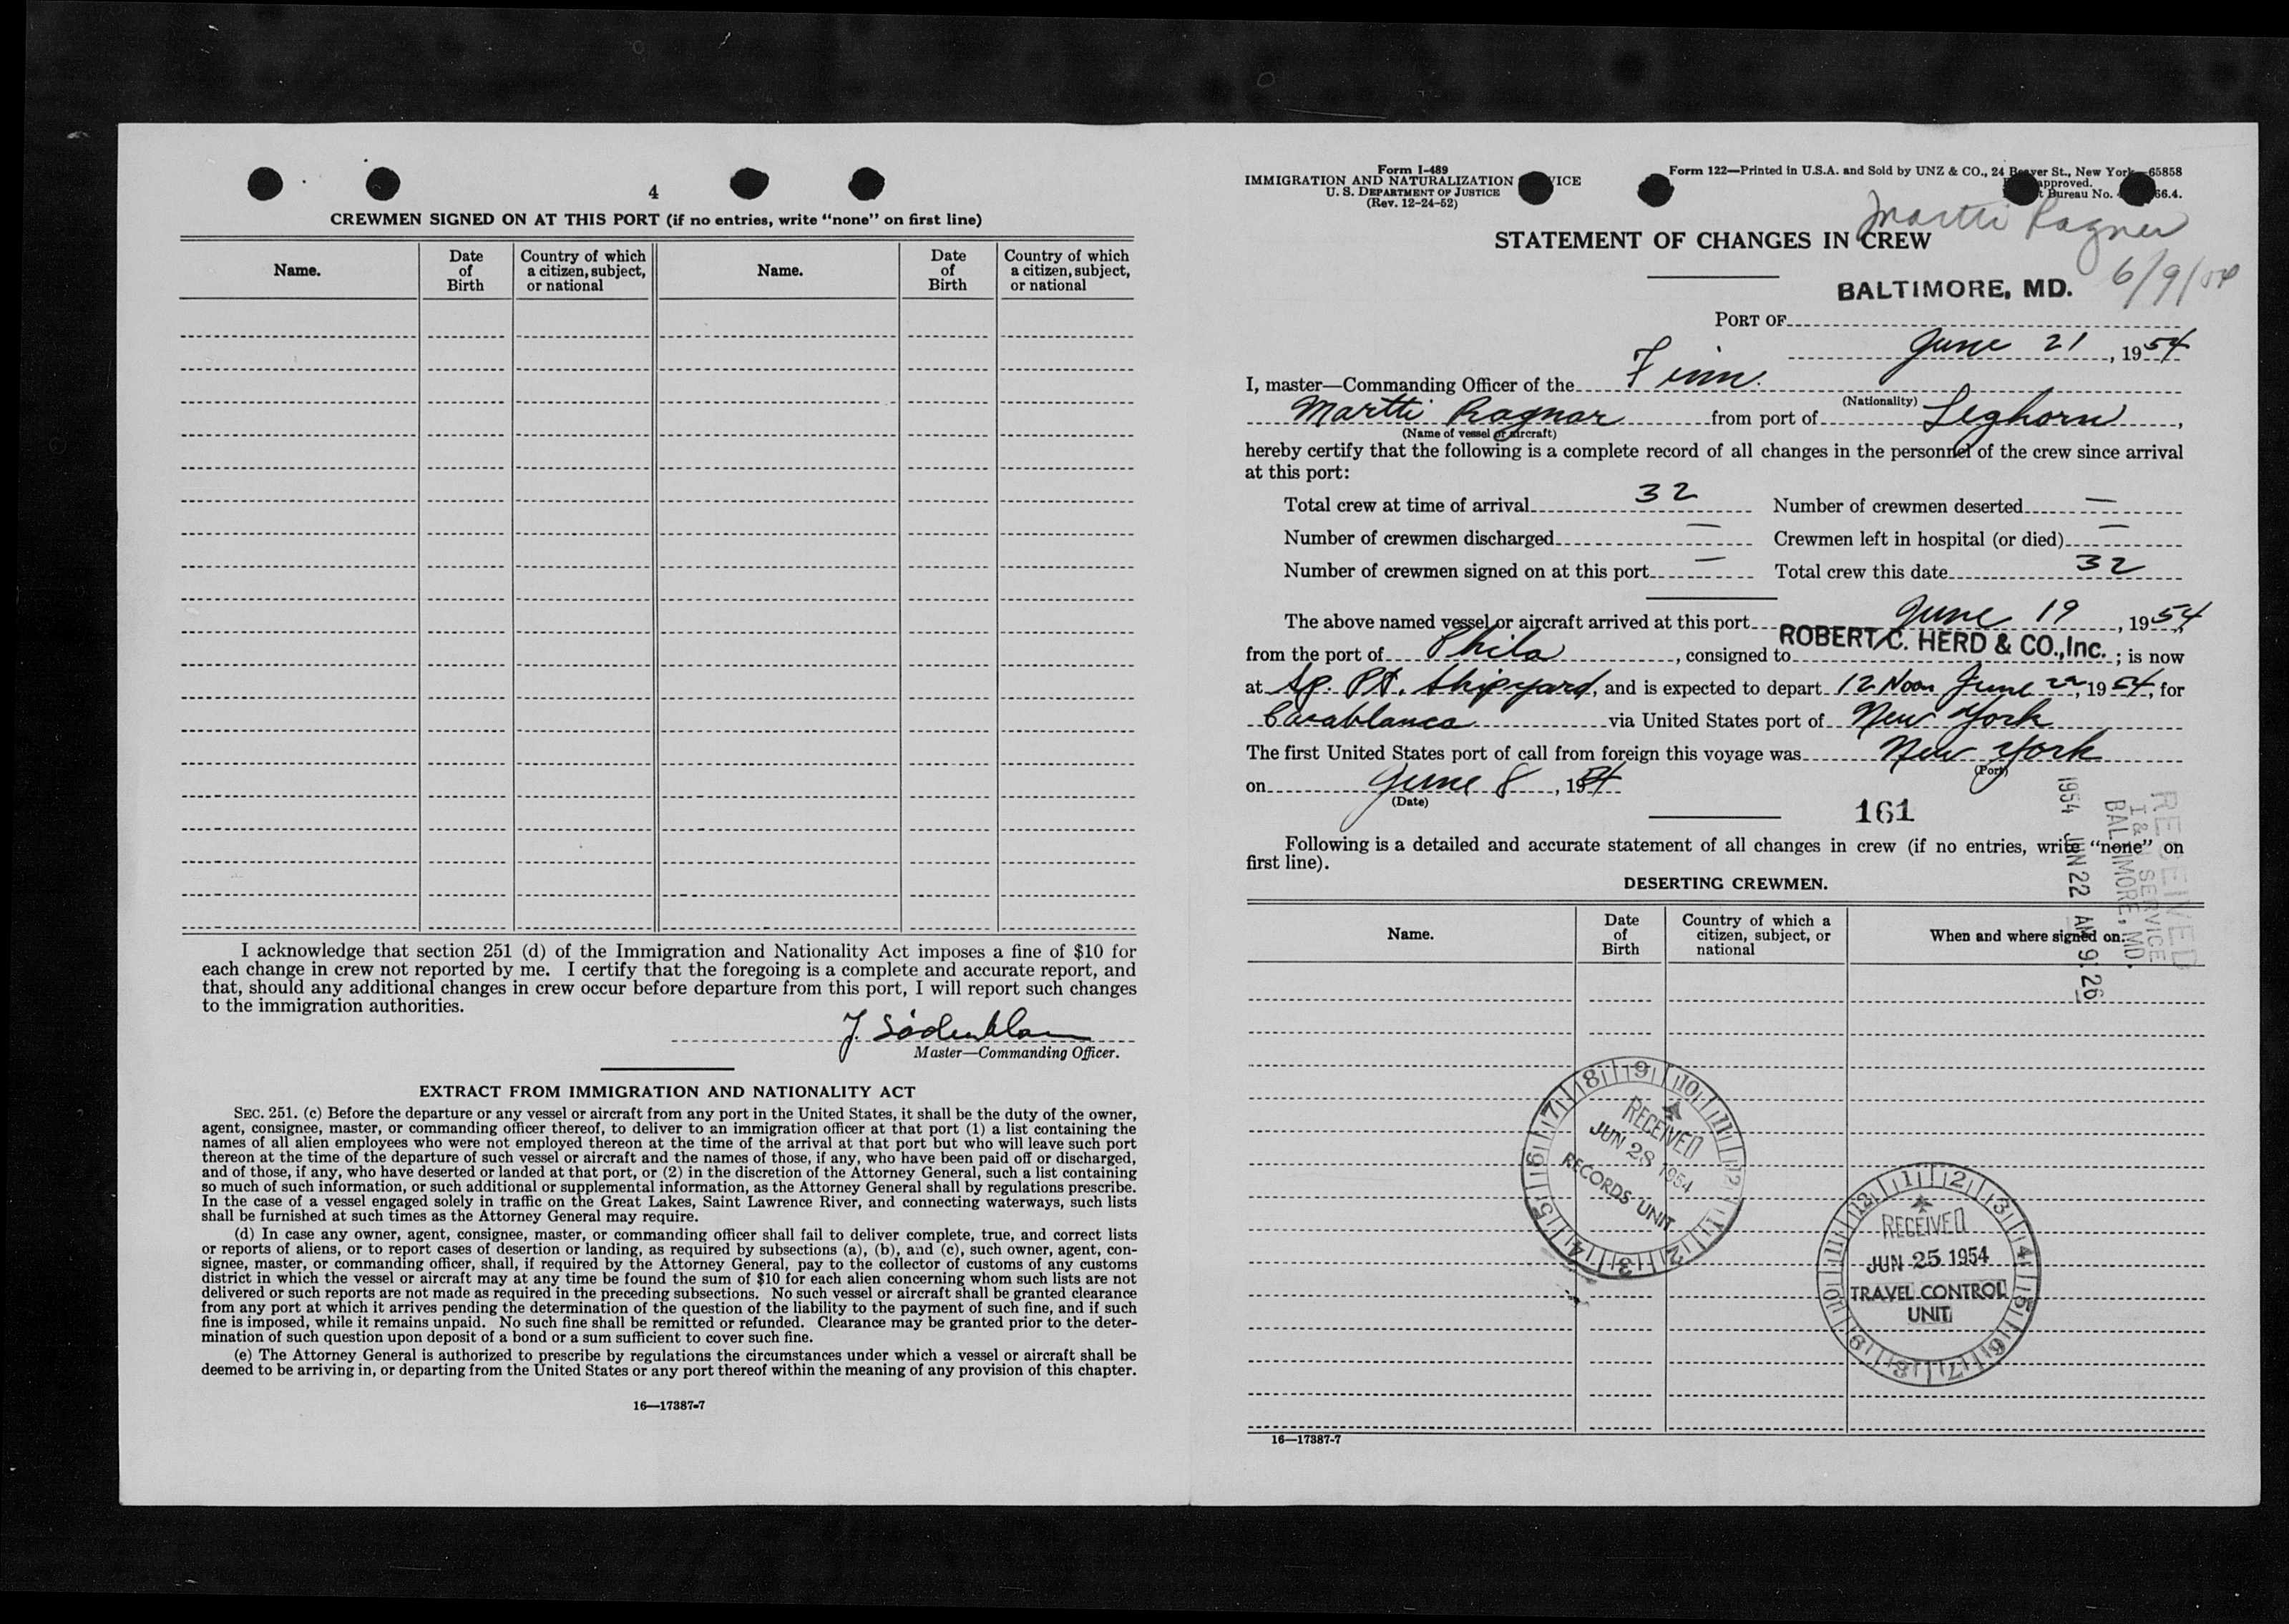 4
CREWMEN SIGNED ON AT THIS PORT (if no entries, write “none” on first line)
Name.
Date of Birth
Country of which a citizen, subject, or national
Name.
Date of Birth
Country of which a citizen, subject, or national
I acknowledge that section 251 (d) of the Immigration and Nationality Act imposes a fine of $10 for
each change in crew not reported by me. I certify that the foregoing is a complete and accurate report, and
that, should any additional changes in crew occur before departure from this port, I will report such changes
to the immigration authorities.
Master—Commanding Officer.
EXTRACT FROM IMMIGRATION AND NATIONALITY ACT
SEC. 251. (c) Before the departure or any vessel or aircraft from any port in the United States, it shall be the duty of the owner,
agent, consignee, master, or commanding officer thereof, to deliver to an immigration officer at that port (1) a list containing the
names of all alien employees who were not employed thereon at the time of the arrival at that port but who will leave such port
thereon at the time of the departure of such vessel or aircraft and the names of those, if any, who have been paid off or discharged,
and of those, if any, who have deserted or landed at that port, or (2) in the discretion of the Attorney General, such a list containing
so much of such information, or such additional or supplemental information, as the Attorney General shall by regulations prescribe.
In the case of a vessel engaged solely in traffic on the Great Lakes, Saint Lawrence River, and connecting waterways, such lists
shall be furnished at such times as the Attorney General may require.
(d) In case any owner, agent, consignee, master, or commanding officer shall fail to deliver complete, true, and correct lists
or reports of aliens, or to report cases of desertion or landing, as required by subsections (a), (b), and (c), such owner, agent, con-
signee, master, or commanding officer, shall, if required by the Attorney General, pay to the collector of customs of any customs
district in which the vessel or aircraft may at any time be found the sum of $10 for each alien concerning whom such lists are not
delivered or such reports are not made as required in the preceding subsections. No such vessel or aircraft shall be granted clearance
from any port at which it arrives pending the determination of the question of the liability to the payment of such fine, and if such
fine is imposed, while it remains unpaid. No such fine shall be remitted or refunded. Clearance may be granted prior to the deter-
mination of such question upon deposit of a bond or a sum sufficient to cover such fine.
(e) The Attorney General is authorized to prescribe by regulations the circumstances under which a vessel or aircraft shall be
deemed to be arriving in, or departing from the United States or any port thereof within the meaning of any provision of this chapter.
16—17387-7
Form I-489
IMMIGRATION AND NATURALIZATION VICE
U. S. DEPARTMENT OF JUSTICE
(Rev. 12-24-52)
Form 122—Printed in U.S.A. and Sold by UNZ & CO., 24 Beaver St., New York—65858
approved.
Bureau No. 66.4.
Martti Ragner
6/9/54
STATEMENT OF CHANGES IN CREW
BALTIMORE, MD.
PORT OF
June 21, 1954
I, master—Commanding Officer of the Finn.
(Nationality)
Martti Ragnar from port of Leghorn,
(Name of vessel or aircraft)
hereby certify that the following is a complete record of all changes in the personnel of the crew since arrival
at this port:
Total crew at time of arrival 32 Number of crewmen deserted —
Number of crewmen discharged — Crewmen left in hospital (or died) —
Number of crewmen signed on at this port — Total crew this date 32
The above named vessel or aircraft arrived at this port June 19, 1954,
from the port of Phila, consigned to ROBERT C. HERD & CO., Inc.; is now
at Sp. Pt. Shipyard, and is expected to depart 12 Noon June 22, 1954, for
Casablanca via United States port of New York
The first United States port of call from foreign this voyage was New York
(Port)
on June 8, 1954
(Date)
161
RECEIVED
I & N SERVICE
BALTIMORE, MD.
1954 JUN 22 AM 9:26
Following is a detailed and accurate statement of all changes in crew (if no entries, write “none” on
first line).
DESERTING CREWMEN.
Name.
Date of Birth
Country of which a citizen, subject, or national
When and where signed on.
8 9 10 11 12 1 2 3 4 5 6 7
RECEIVED
JUN 28 1954
RECORDS UNIT
12 1 2 3 4 5 6 7 8 9 10 11
RECEIVED
JUN 25 1954
TRAVEL CONTROL
UNIT
16—17387-7